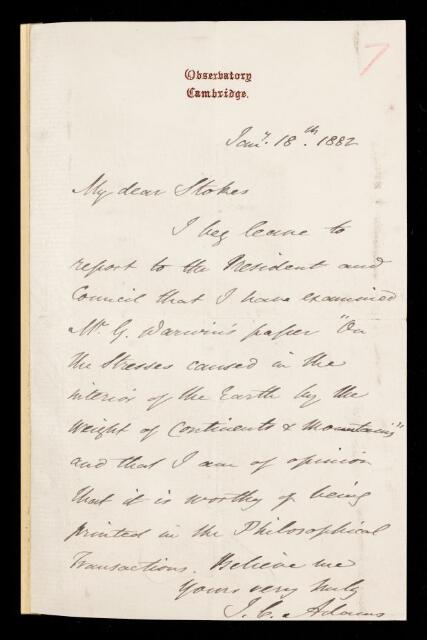 7
Observatory
Cambridge.
Jany. 18th. 1882
My dear Stokes
I beg leave to
report to the President and
Council that I have examined
Mr. G. Darwin's paper "On
the Stresses caused in the
interior of the Earth by the
Weight of Continents & Mountains"
and that I am of opinion
that it is worthy of being
printed in the Philosophical
Transactions. Believe me
Yours very truly
J. C. Adams